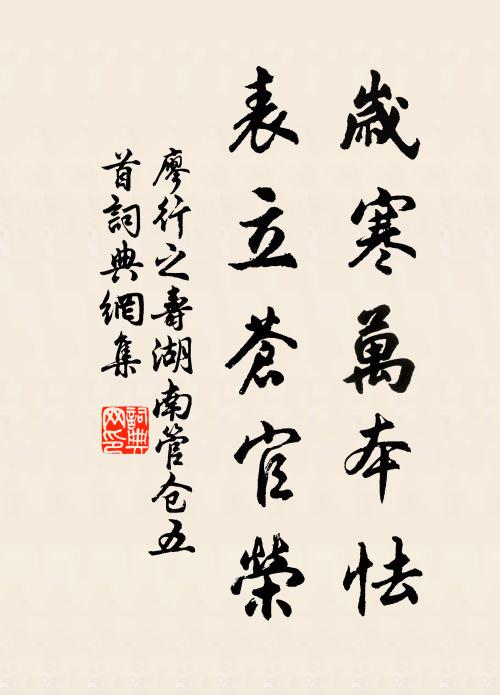 歲寒萬本怯
表立蒼官榮
廖行之壽湖南管仓五
首詞典網集
詞典
网印